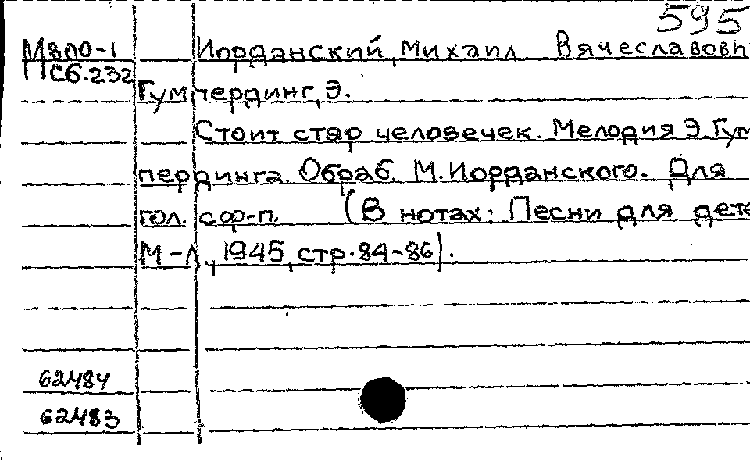 595
М800-1 Иорданский, Михаил Вячеславови
Сб.232
Гумпердинг, Э.
Стоит стар человечек. Мелодия Э. Гум
пердинга. Обраб. М. Иорданского. Для
гол. с ф-п. (В нотах: Песни для дете
М-Л, 1945, стр. 84-86).
62484
62483